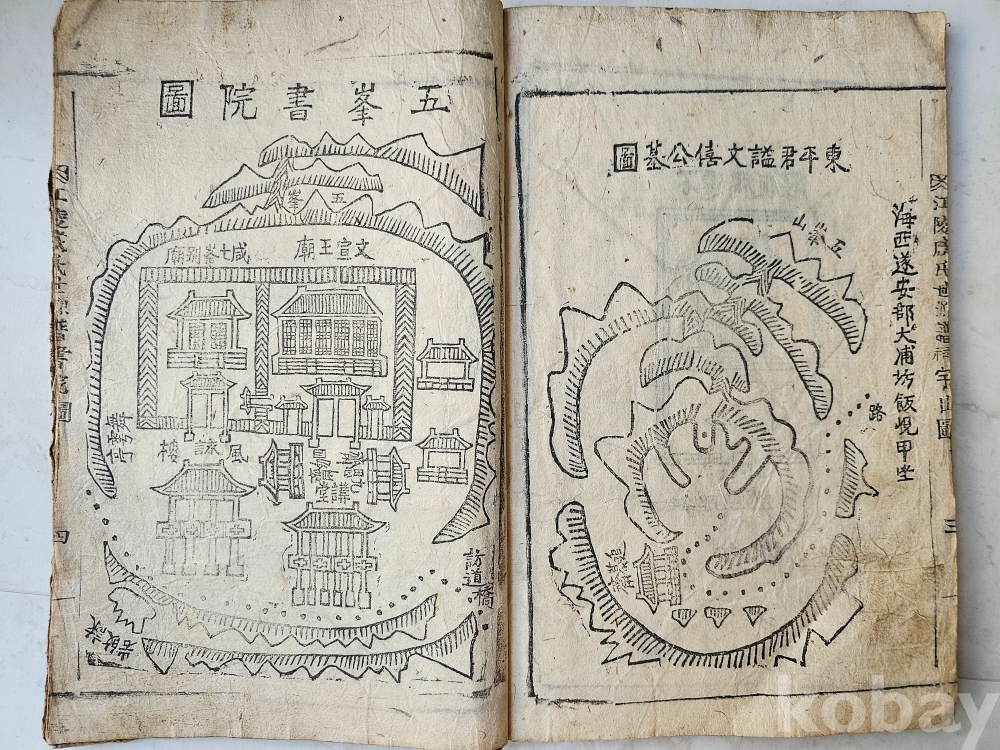 東平君謚文僖公墓圖
海西遂安郡大浦坊飯峴甲坐
五峯山
路
三
五峯書院圖
五峯
文宣王廟
咸七峯別廟
風詠樓
舞雩亭
講堂
訪道橋
四
kobay